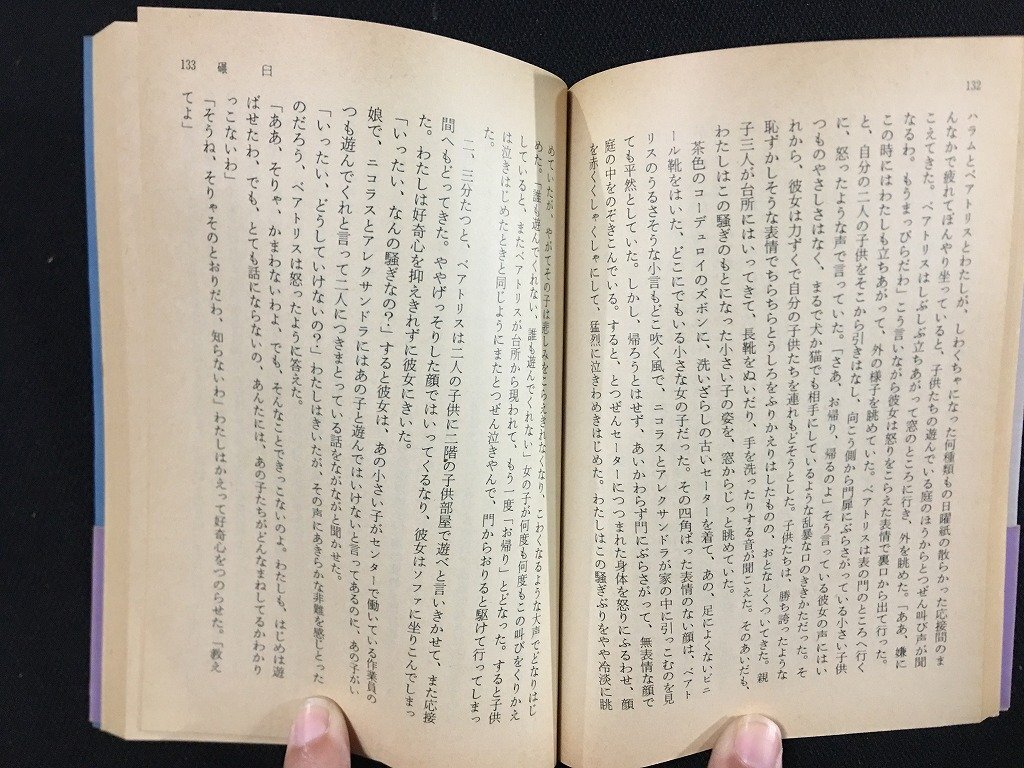 132
ハラムとベアトリスとわたしが、しわくちゃになった何種類もの日曜紙の散らかった応接間のま
んなかで疲れてぼんやり坐っていると、子供たちの遊んでいる庭のほうからとつぜん叫び声が聞
こえてきた。ベアトリスはしぶしぶ立ちあがって窓のところに行き、外を眺めた。「ああ、嫌に
なるわ。もうまっぴらだわ」こう言いながら彼女は怒りをこらえた表情で裏口から出て行った。
この時にはわたしも立ちあがって、外の様子を眺めていた。ベアトリスは表の門のところへ行く
と、自分の二人の子供をそこから引きはなし、向こう側から門扉にぶらさがっている小さい子供
に、怒ったような声で言っていた。「さあ、お帰り、帰るのよ」そう言っている彼女の声にはい
つものやさしさはなく、まるで犬か猫でも相手にしているような乱暴な口のききかただった。そ
れから、彼女は力ずくで自分の子供たちを連れもどそうとした。子供たちは、勝ち誇ったような
恥ずかしそうな表情でちらちらとうしろをふりかえりはしたものの、おとなしくついてきた。親
子三人が台所にはいってきて、長靴をぬいだり、手を洗ったりする音が聞こえた。そのあいだも、
わたしはこの騒ぎのもとになった小さい子の姿を、窓からじっと眺めていた。
茶色のコーデュロイのズボンに、洗いざらしの古いセーターを着て、あの、足によくないビニ
ール靴をはいた、どこにでもいる小さな女の子だった。その四角ばった表情のない顔は、ベアト
リスのうるさそうな小言もどこ吹く風で、ニコラスとアレクサンドラが家の中に引っこむのを見
ても平然としていた。しかし、帰ろうとはせず、あいかわらず門にぶらさがって、無表情な顔で
庭の中をのぞきこんでいる。すると、とつぜんセーターにつつまれた身体を怒りにふるわせ、顔
を赤くくしゃくしゃにして、猛烈に泣きわめきはじめた。わたしはこの騒ぎぶりをやや冷淡に眺
133 碾臼
めていたが、やがてその子は悲しみをこらえきれなくなり、こわくなるような大声でどなりはじ
めた。「誰も遊んでくれない、誰も遊んでくれない」女の子が何度も何度もこの叫びをくりかえ
していると、またベアトリスが台所から現われて、もう一度「お帰り」とどなった。すると子供
は泣きはじめたときと同じようにまたとつぜん泣きやんで、門からおりると駆けて行ってしまっ
た。
二、三分たつと、ベアトリスは二人の子供に二階の子供部屋で遊べと言いきかせて、また応接
間へもどってきた。ややげっそりした顔ではいってくるなり、彼女はソファに坐りこんでしまっ
た。わたしは好奇心を抑えきれずに彼女にきいた。
「いったい、なんの騒ぎなの？」すると彼女は、あの小さい子がセンターで働いている作業員の
娘で、ニコラスとアレクサンドラにはあの子と遊んではいけないと言ってあるのに、あの子がい
つも遊んでくれと言って二人につきまとっている話をながながと聞かせた。
「いったい、どうしていけないの？」わたしはきいたが、その声にあきらかな非難を感じとった
のだろう、ベアトリスは怒ったように答えた。
「ああ、そりゃ、かまわないわよ、でも、そんなことできっこないのよ。わたしも、はじめは遊
ばせたわ、でも、とても話にならないの、あんたには、あの子たちがどんなまねしてるかわかり
っこないわ」
「そうね、そりゃそのとおりだわ、知らないわ」わたしはかえって好奇心をつのらせた。「教え
てよ」